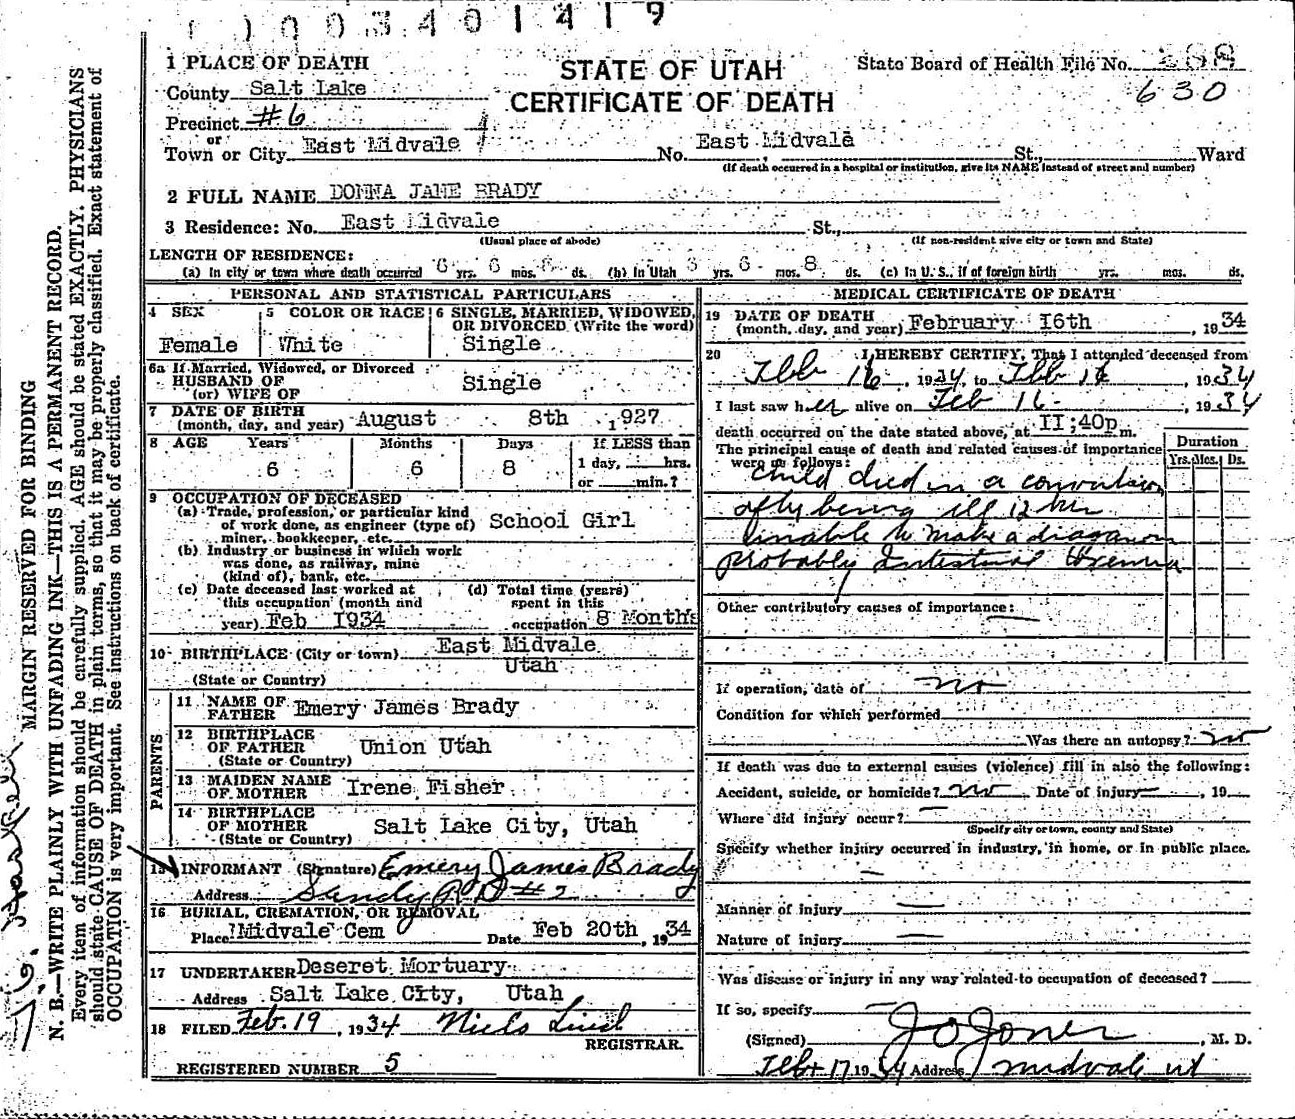 1003401419
1 PLACE OF DEATH
STATE OF UTAH
CERTIFICATE OF DEATH
State Board of Health File No.
630
County Salt Lake
Precinct #6
or
Town or City East Midvale No. East Midvale St., Ward
(If death occurred in a hospital or institution, give its NAME instead of street and number)
2 FULL NAME DONNA JANE BRADY
3 Residence: No. East Midvale St.,
(Usual place of abode) (If non-resident give city or town and State)
LENGTH OF RESIDENCE:
(a) In city or town where death occurred 6 yrs. 6 mos. 8 ds. (b) In Utah yrs. 6 mos. 8 ds. (c) In U. S., if of foreign birth yrs. mos. ds.
PERSONAL AND STATISTICAL PARTICULARS
4 SEX Female
5 COLOR OR RACE White
6 SINGLE, MARRIED, WIDOWED, OR DIVORCED (Write the word) Single
6a If Married, Widowed, or Divorced
HUSBAND OF
(or) WIFE OF Single
7 DATE OF BIRTH
(month, day, and year) August 8th 1927
8 AGE Years Months Days If LESS than
6 6 8 1 day, hrs.
or min.?
9 OCCUPATION OF DECEASED
(a) Trade, profession, or particular kind
of work done, as engineer (type of) School Girl
miner, bookkeeper, etc.
(b) Industry or business in which work
was done, as railway, mine
(kind of), bank, etc.
(c) Date deceased last worked at
this occupation (month and
year) Feb 1934
(d) Total time (years)
spent in this
occupation 8 Months
10 BIRTHPLACE (City or town) East Midvale
Utah
(State or Country)
PARENTS
11 NAME OF
FATHER Emery James Brady
12 BIRTHPLACE
OF FATHER Union Utah
(State or Country)
13 MAIDEN NAME
OF MOTHER Irene Fisher
14 BIRTHPLACE
OF MOTHER Salt Lake City, Utah
(State or Country)
15 INFORMANT (Signature) Emery James Brady
Address Sandy R D #2
16 BURIAL, CREMATION, OR REMOVAL
Place Midvale Cem Date Feb 20th, 1934
17 UNDERTAKER Deseret Mortuary
Address Salt Lake City, Utah
18 FILED Feb. 19, 1934 Niels Lind
REGISTRAR.
REGISTERED NUMBER 5
MEDICAL CERTIFICATE OF DEATH
19 DATE OF DEATH
(month, day, and year) February 16th, 1934
20 I HEREBY CERTIFY, That I attended deceased from
Feb 16, 1934, to Feb 16, 1934
I last saw her alive on Feb 16, 1934
death occurred on the date stated above, at 11;40p m.
The principal cause of death and related causes of importance
were as follows:
Duration
Yrs. Mos. Ds.
Child died in a convulsion
after being ill 12 hrs
Unable to make a diagnosis
probably Intestinal Toxemia
Other contributory causes of importance:
If operation, date of no
Condition for which performed
Was there an autopsy? no
If death was due to external causes (violence) fill in also the following:
Accident, suicide, or homicide? no Date of injury — , 19
Where did injury occur? —
(Specify city or town, county and State)
Specify whether injury occurred in industry, in home, or in public place.
—
Manner of injury —
Nature of injury —
Was disease or injury in any way related to occupation of deceased?
If so, specify —
(Signed) J O Jones, M. D.
Feb 17 1934 Address Midvale Ut
MARGIN RESERVED FOR BINDING
N. B.—WRITE PLAINLY WITH UNFADING INK—THIS IS A PERMANENT RECORD.
Every item of information should be carefully supplied. AGE should be stated EXACTLY. PHYSICIANS
should state CAUSE OF DEATH in plain terms, so that it may be properly classified. Exact statement of
OCCUPATION is very important. See instructions on back of certificate.